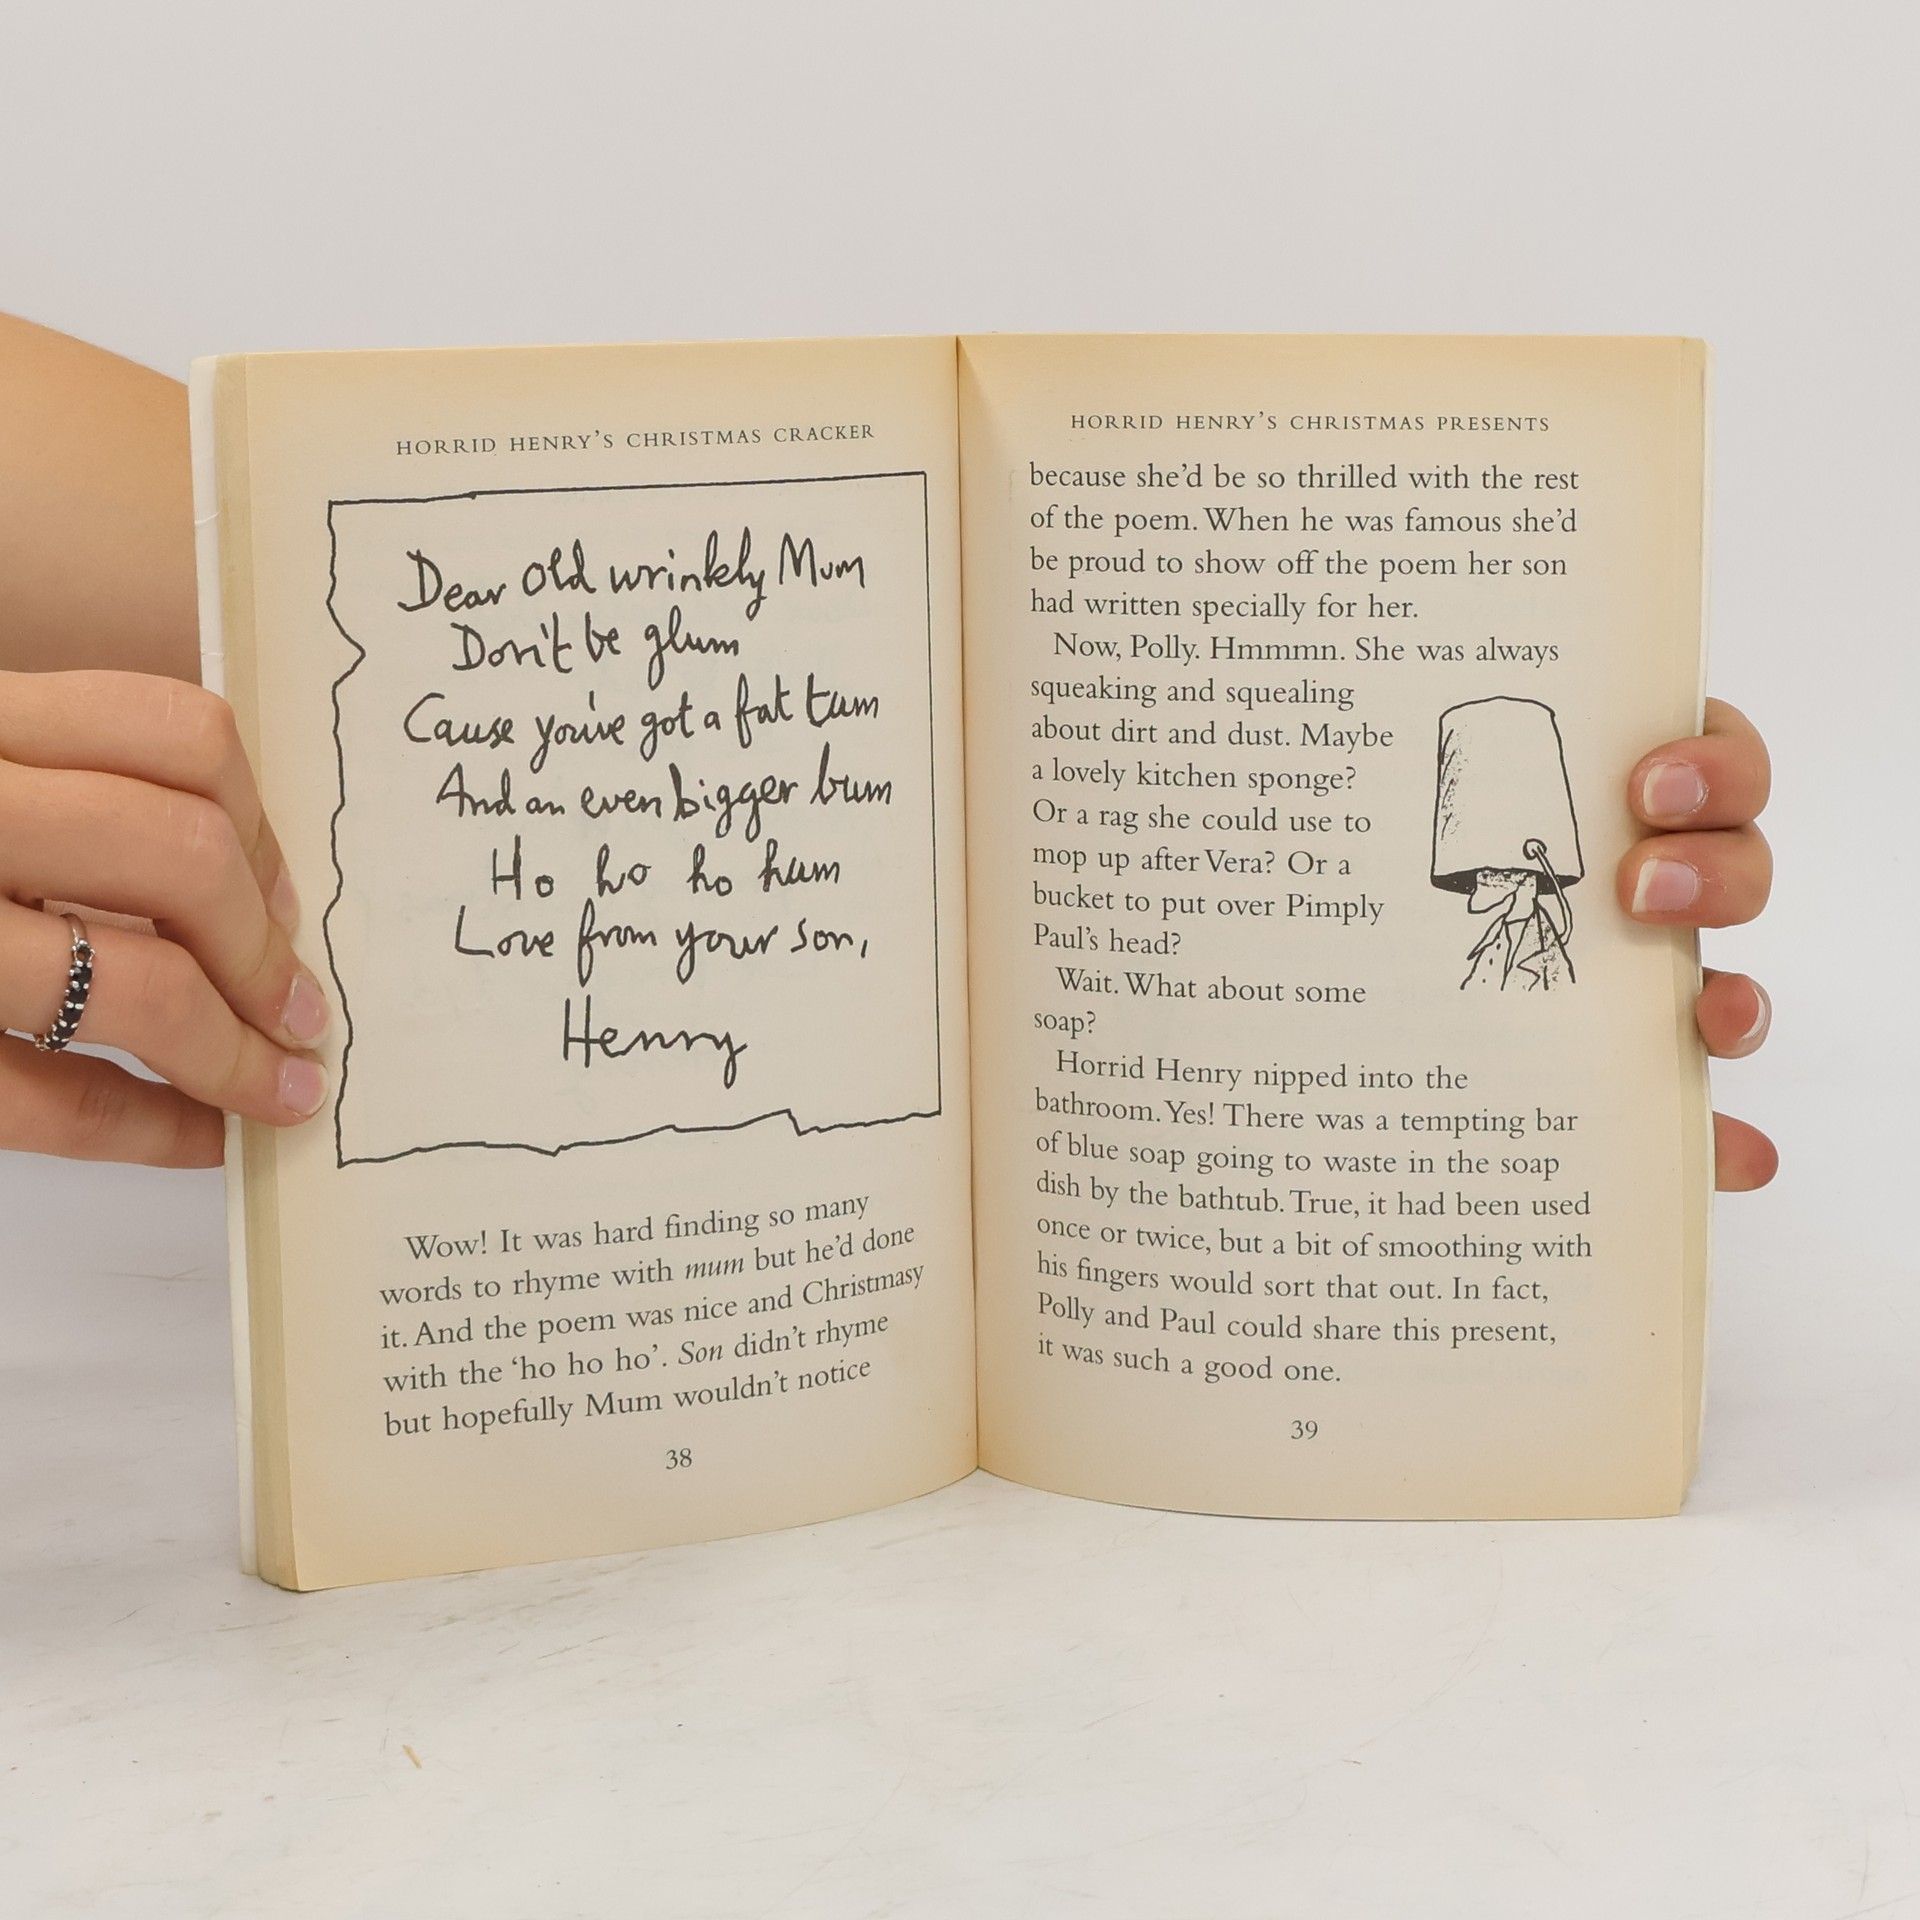 HORRID HENRY'S CHRISTMAS CRACKER
Dear Old wrinkly Mum
Don't be glum
Cause you've got a fat tum
And an even bigger bum
Ho ho ho hum
Love from your son,
Henry
Wow! It was hard finding so many
words to rhyme with mum but he'd done
it. And the poem was nice and Christmasy
with the 'ho ho ho'. Son didn't rhyme
but hopefully Mum wouldn't notice
38
HORRID HENRY'S CHRISTMAS PRESENTS
because she'd be so thrilled with the rest
of the poem. When he was famous she'd
be proud to show off the poem her son
had written specially for her.
Now, Polly. Hmmmn. She was always
squeaking and squealing
about dirt and dust. Maybe
a lovely kitchen sponge?
Or a rag she could use to
mop up after Vera? Or a
bucket to put over Pimply
Paul's head?
Wait. What about some
soap?
Horrid Henry nipped into the
bathroom. Yes! There was a tempting bar
of blue soap going to waste in the soap
dish by the bathtub. True, it had been used
once or twice, but a bit of smoothing with
his fingers would sort that out. In fact,
Polly and Paul could share this present,
it was such a good one.
39